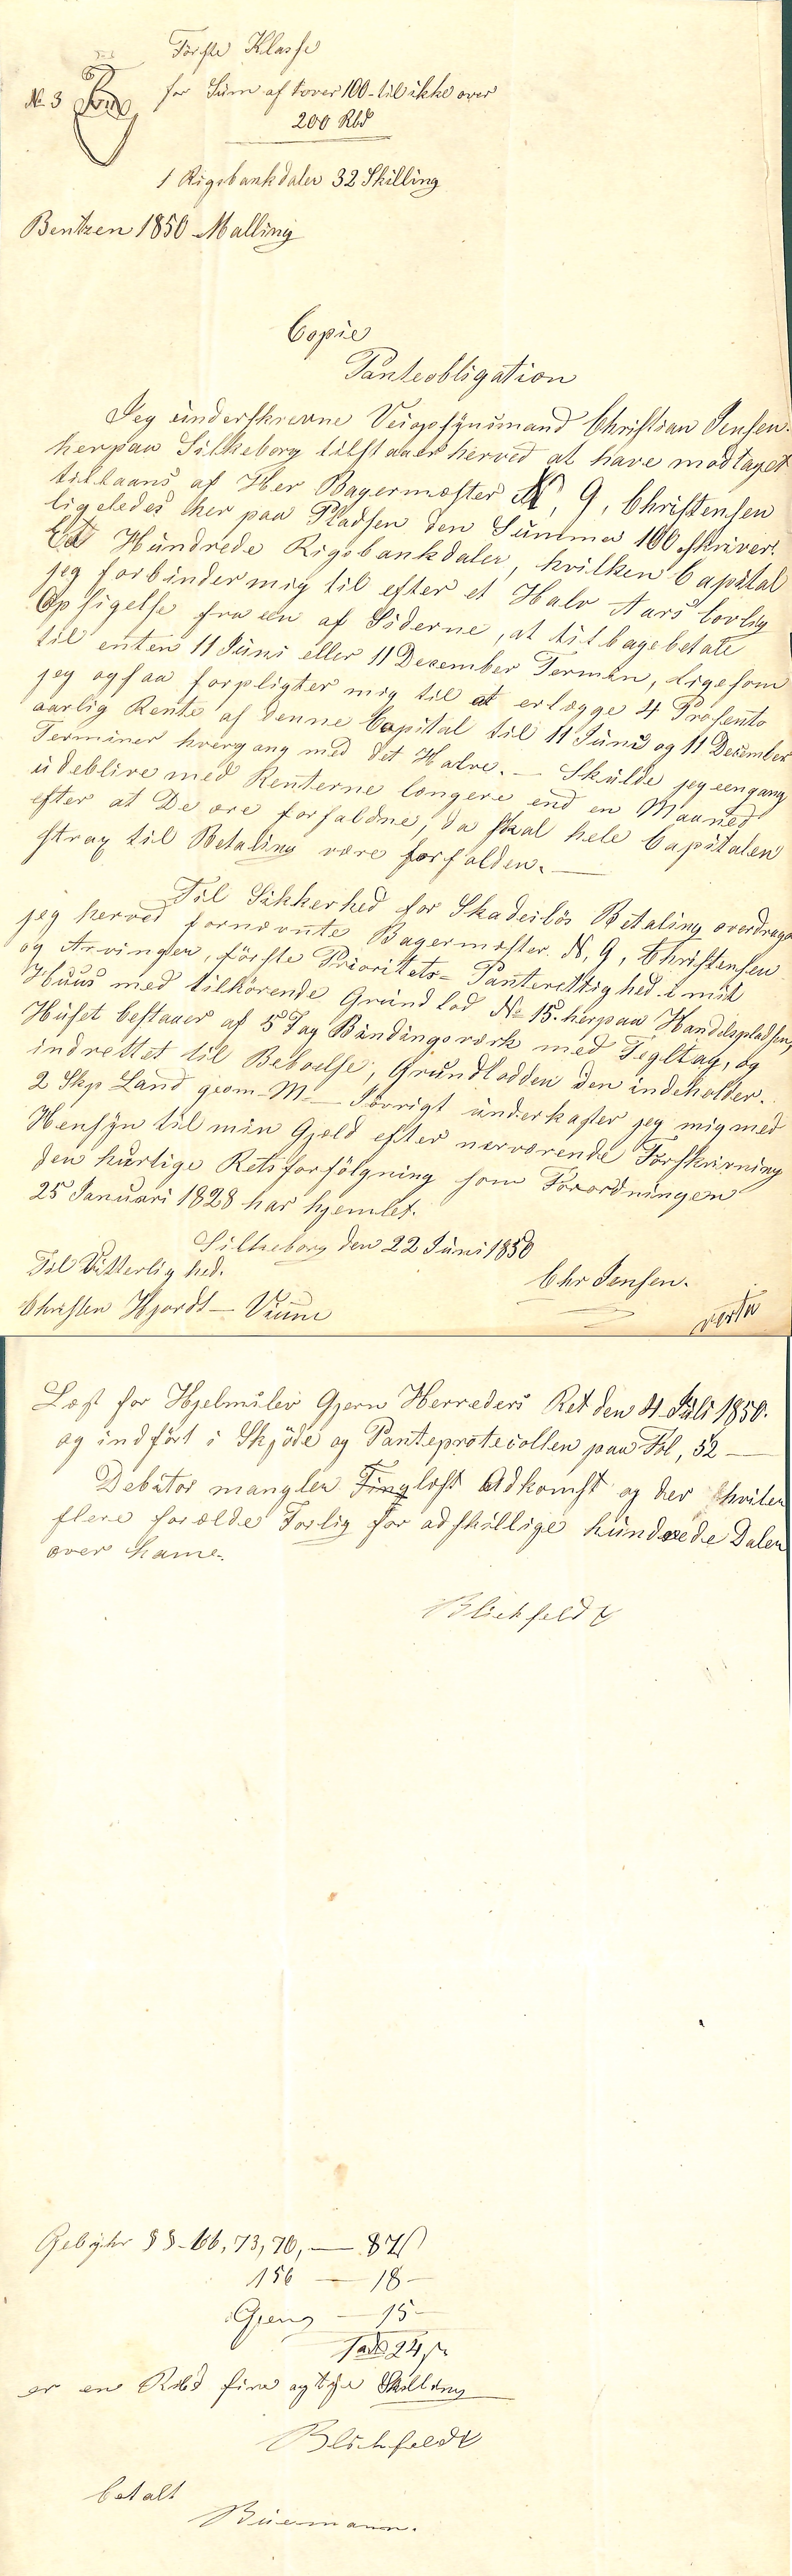 Første Klasse
No 3
for Sum af over 100 til ikke over
200 Rbd
1 Rigsbankdaler 32 Skilling
Bentzen 1850 Malling
Copie
Panteobligation
Jeg underskrevne Veiopsynsmand Christian Jensen
herpaa Silkeborg tilstaaer herved at have modtaget
tillaans af Her Bagermester N, G, Christensen
ligeledes her paa Pladsen den Summa 100 skriver
Et Hundrede Rigsbankdaler, hvilken Capital
jeg forbinder mig til efter et Halv Aars lovlig
Opsigelse fra een af Siderne, at tilbagebetale
til enten 11 Juni eller 11 December Termin, ligesom
jeg ogsaa forpligter mig til at erlægge 4 Prosento
aarlig Rente af denne Capital til 11 Juni og 11 December
Terminer hvergang med det Halve. — Skulde jeg eengang
udeblive med Renterne længere end en Maaned
efter at De ere forfaldne, da skal hele Capitalen
strax til Betaling være forfalden. —
Til Sikkerhed for Skadeslös Betaling overdrager
jeg herved fornævnte Bagermester N, G, Christensen
og Arvinger, förste Prioritets= Panterettighed i mit
Huus med tilhørende Grundlod No 15. herpaa Handelspladsen,
Huset bestaaer af 5 Fag Bindingsværk med Tegltag, og
indrettet til Beboelse, Grundlodden den indeholder.
2 Skp Land geom. M — Iövrigt underkaster jeg mig med
Hensyn til min Gjæld efter nærværende Forskrivning
den hurtige Retsforfölgning som Forordningen
25 Januari 1828 har hjemlet.
Silkeborg den 22 Juni 1850
Til Vitterlighed.
Chr Jensen.
Christen Hjordt —
verte
Læst for Hjelmslev Gjern Herreders Ret den 4 Juli 1850.
og indfört i Skjöde og Panteprotecollen paa Fol, 52 —
Debitor mangler Tinglæst Adkomst og der hviler
flere forælde Forlig for adskillige hundrede Daler
over ham.
Blichfeldt
Gebyhr §§ 66, 73, 70, — 87 ß
156 — 18 —
Gjens — 15 —
1 Rbd 24 ß
er en Rbd fire og tyve Skilling
Blichfeldt
betalt
Buemann.